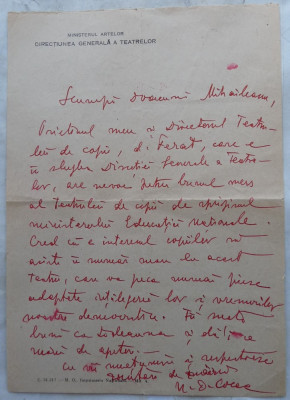 MINISTERUL ARTELOR
DIRECȚIUNEA GENERALĂ A TEATRELOR
Scumpă Doamnă Mihăileanu,
Prietenul meu și Directorul Teatru-
lui de copii, dl Ferat, care e
în slujba Direcției Generale a Teatre-
lor, are nevoe pentru bunul mers
al Teatrului de copii de sprijinul
ministerului Educației Naționale.
Cred că e interesul copiilor să
aibă în număr mare la acest
teatru, care va juca numai piese
adaptate înțelegerii lor și vremurilor
noastre democratice. Fă
bună ca totdeauna și dă
de ajutor.
Cu mulțumiri și respectoase
N. D. Cocea